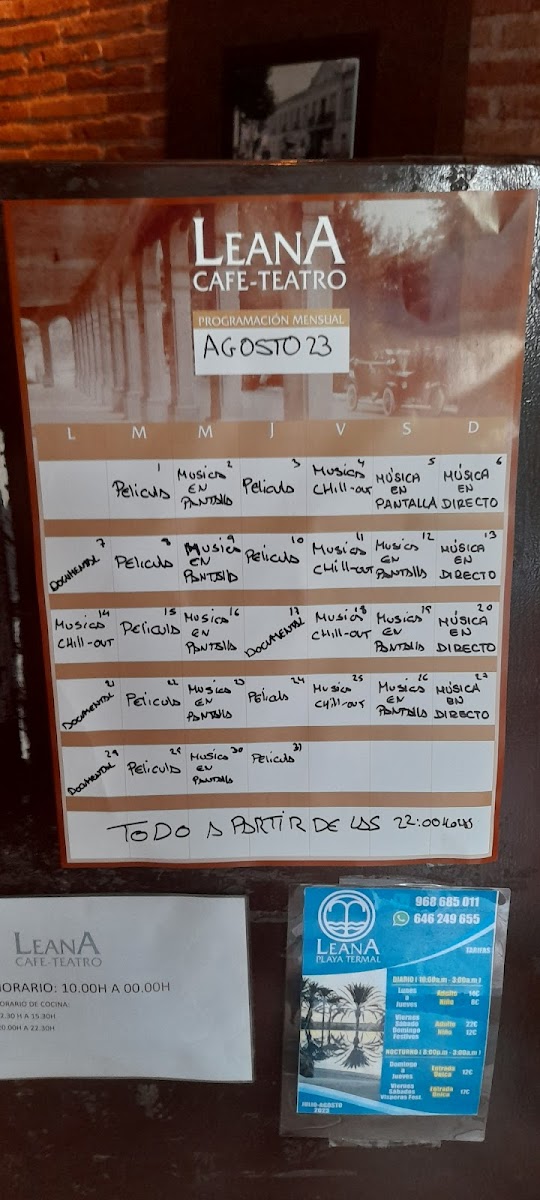 LEANA
CAFE-TEATRO
PROGRAMACIÓN MENSUAL
AGOSTO 23
L M M J V S D
1 2 3 4 5 6
Pelicula Musica Pelicula Musica MÚSICA MÚSICA
EN Chill-out EN EN
PANTALLA PANTALLA DIRECTO
7 8 9 10 11 12 13
DOCUMENTAL Pelicula Musica Pelicula Musica Musica MÚSICA
EN Chill-out EN EN
PANTALLA PANTALLA DIRECTO
14 15 16 17 18 19 20
Musica Pelicula Musica DOCUMENTAL Musica Musica MÚSICA
Chill-out EN Chill-out EN EN
PANTALLA PANTALLA DIRECTO
21 22 23 24 25 26 27
DOCUMENTAL Pelicula Musica Pelicula Musica Musica MÚSICA
EN Chill-out EN EN
PANTALLA PANTALLA DIRECTO
29 30 31
DOCUMENTAL Pelicula Musica Pelicula
EN
PANTALLA
TODO A PARTIR DE LAS 22:00 HORAS
LEANA
CAFE-TEATRO
HORARIO: 10.00H A 00.00H
HORARIO DE COCINA:
2.30 H A 15.30H
20.00H A 22.30H
968 685 011
646 249 655
LEANA
PLAYA TERMAL
TARIFAS
DIARIO ( 10:00a.m - 3:00a.m )
Lunes
a
Jueves
Adulto 14€
Niño 8€
Viernes
Sábado
Domingo
Festivos
Adulto 22€
Niño 12€
NOCTURNO ( 8:00p.m - 3:00a.m )
Domingo
a
Jueves
Entrada
Única
12€
Viernes
Sábados
Vísperas Fest.
Entrada
Única
17€
JULIO-AGOSTO
2023